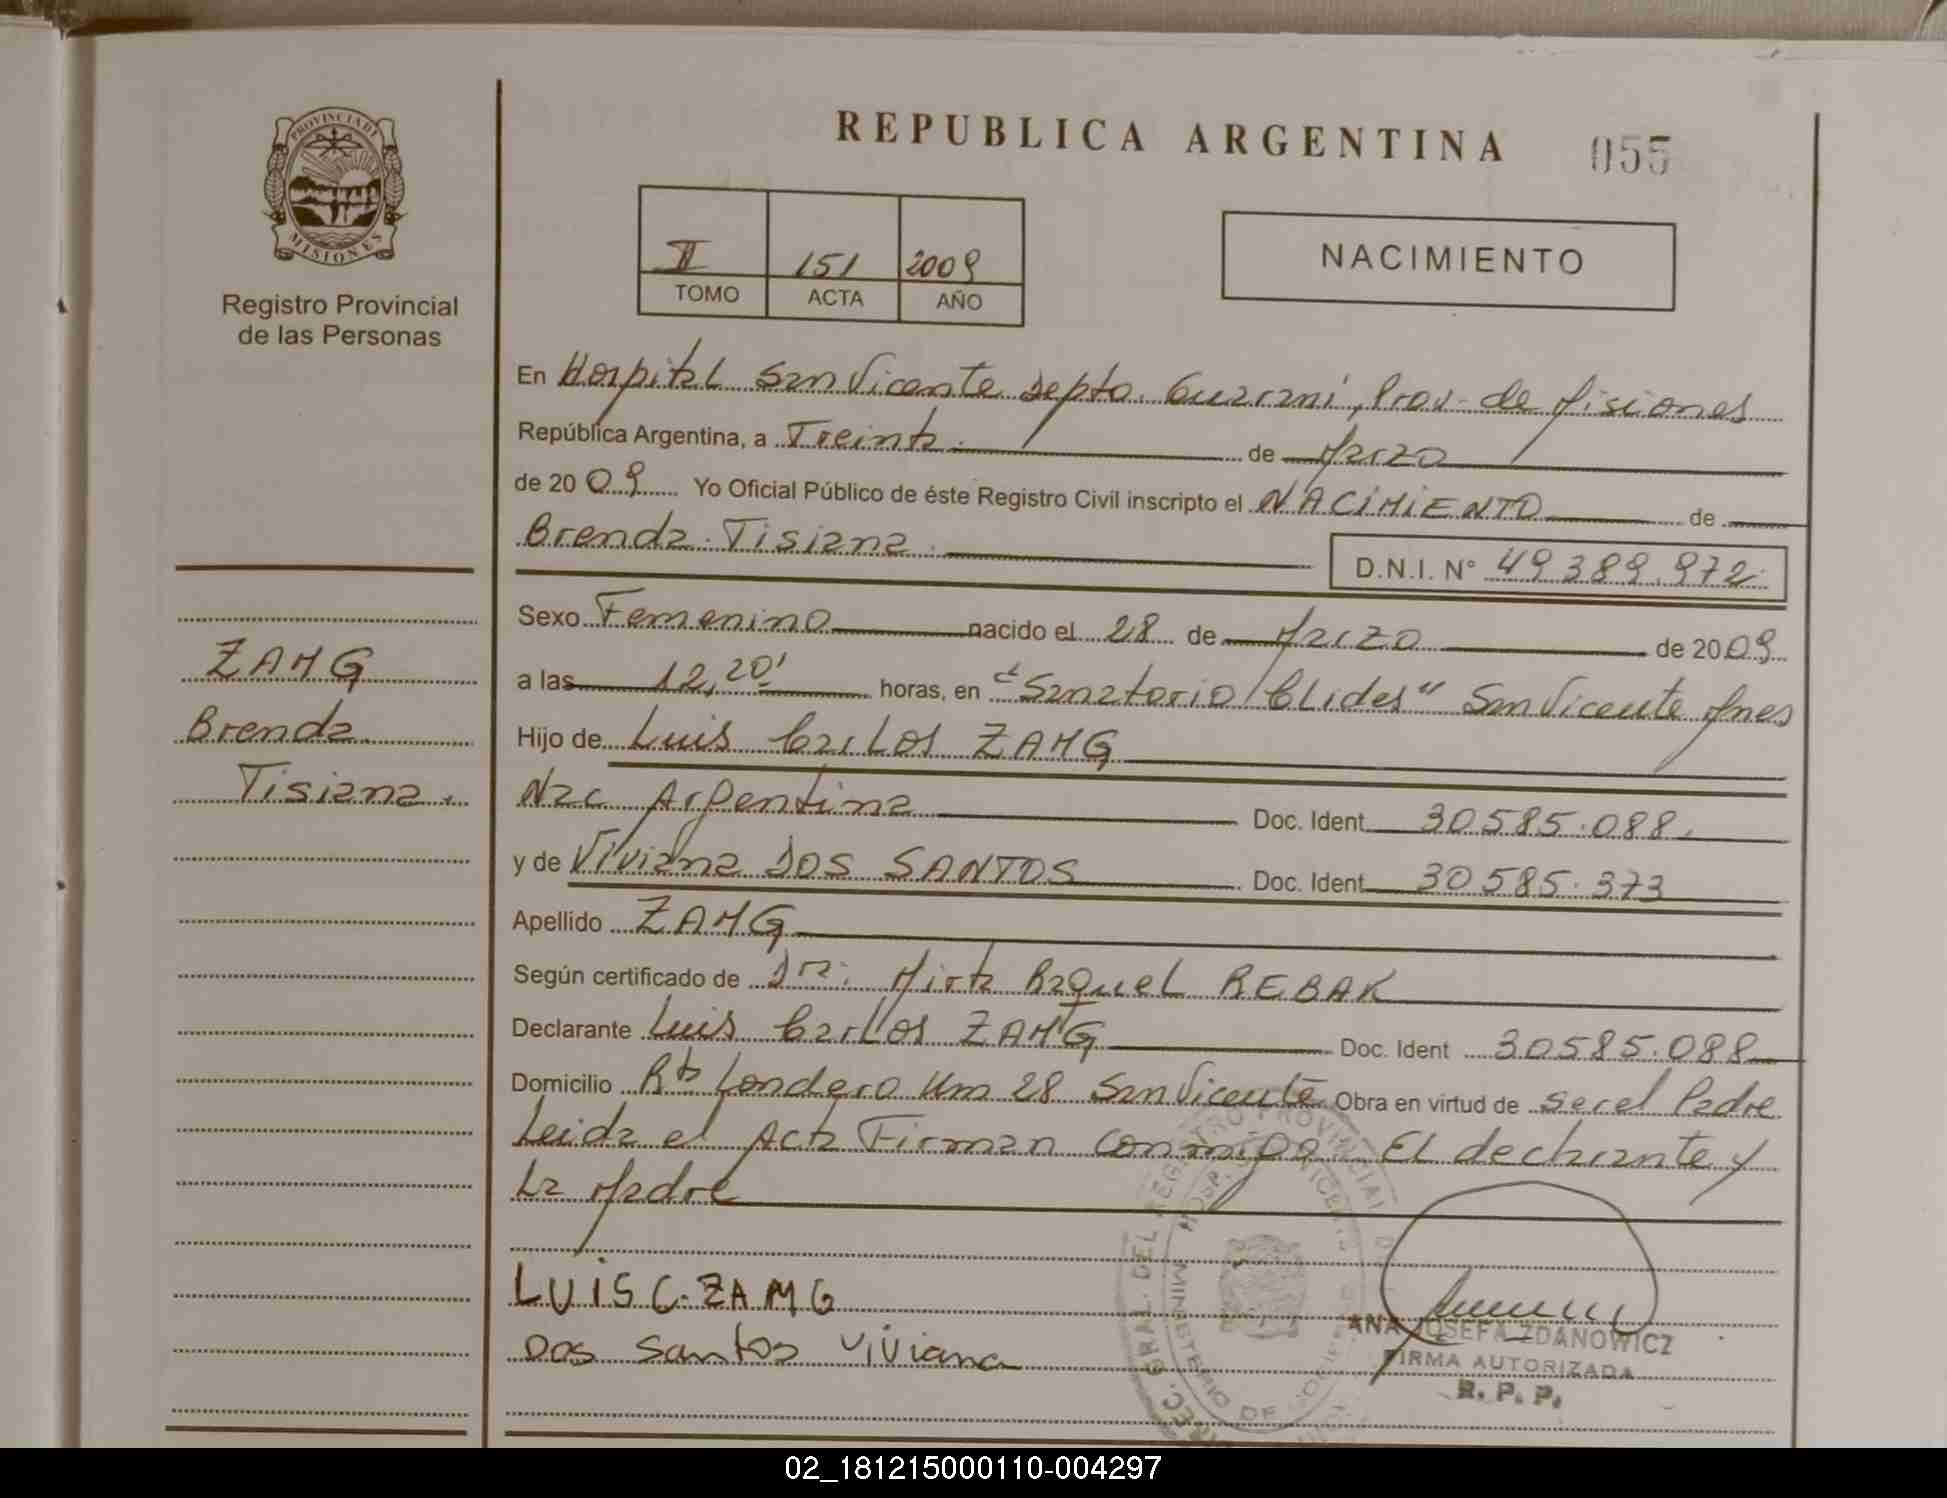 REPUBLICA ARGENTINA
055
PROVINCIA DE
MISIONES
Registro Provincial
de las Personas
II 151 2009
TOMO ACTA AÑO
NACIMIENTO
En Hospital San Vicente Depto. Guarani, Prov. de Misiones
República Argentina, a Treinta de Marzo
de 2009 Yo Oficial Público de éste Registro Civil inscripto el NACIMIENTO de
Brenda Tisiana
D.N.I. N° 49389.972
Sexo Femenino nacido el 28 de Marzo de 2009
a las 12,20' horas, en "Sanatorio Clides" San Vicente Mnes
Hijo de Luis Carlos ZAMG
Nac Argentina Doc. Ident. 30585.088.
y de Viviana DOS SANTOS Doc. Ident. 30585.373
Apellido ZAMG
Según certificado de Dra: Mirta Raquel REBAK
Declarante Luis Carlos ZAMG Doc. Ident 30585.088
Domicilio Rta Londero Km 28 San Vicente Obra en virtud de ser el Padre
Leida el Acta Firman Conmigo El declarante y
La Madre
LUIS C. ZAMG
Dos Santos Viviana
ZAMG
Brenda
Tisiana.
ANA JOSEFA ZDANOWICZ
FIRMA AUTORIZADA
R. P. P.
02_181215000110-004297